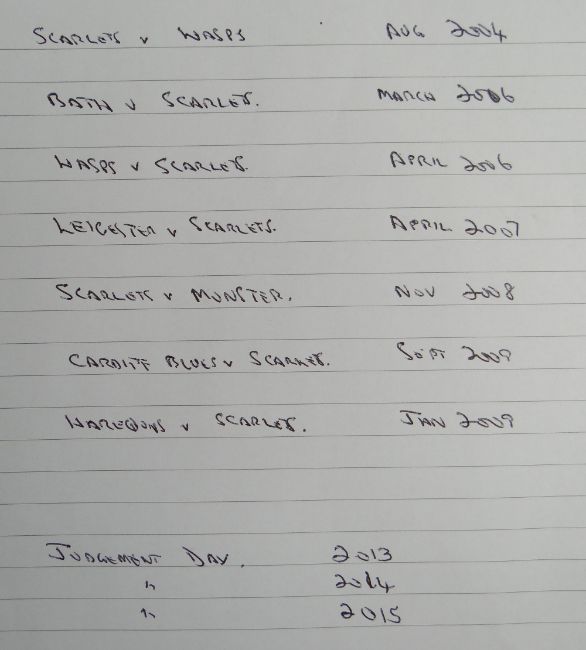 SCARLETS v WASPS AUG 2004
BATH v SCARLETS. MARCH 2006
WASPS v SCARLETS. APRIL 2006
LEICESTER v SCARLETS. APRIL 2007
SCARLETS v MUNSTER. NOV 2008
CARDIFF BLUES v SCARLETS. SEPT 2009
HARLEQUINS v SCARLETS. JAN 2009
JUDGEMENT DAY. 2013
" 2014
" 2015